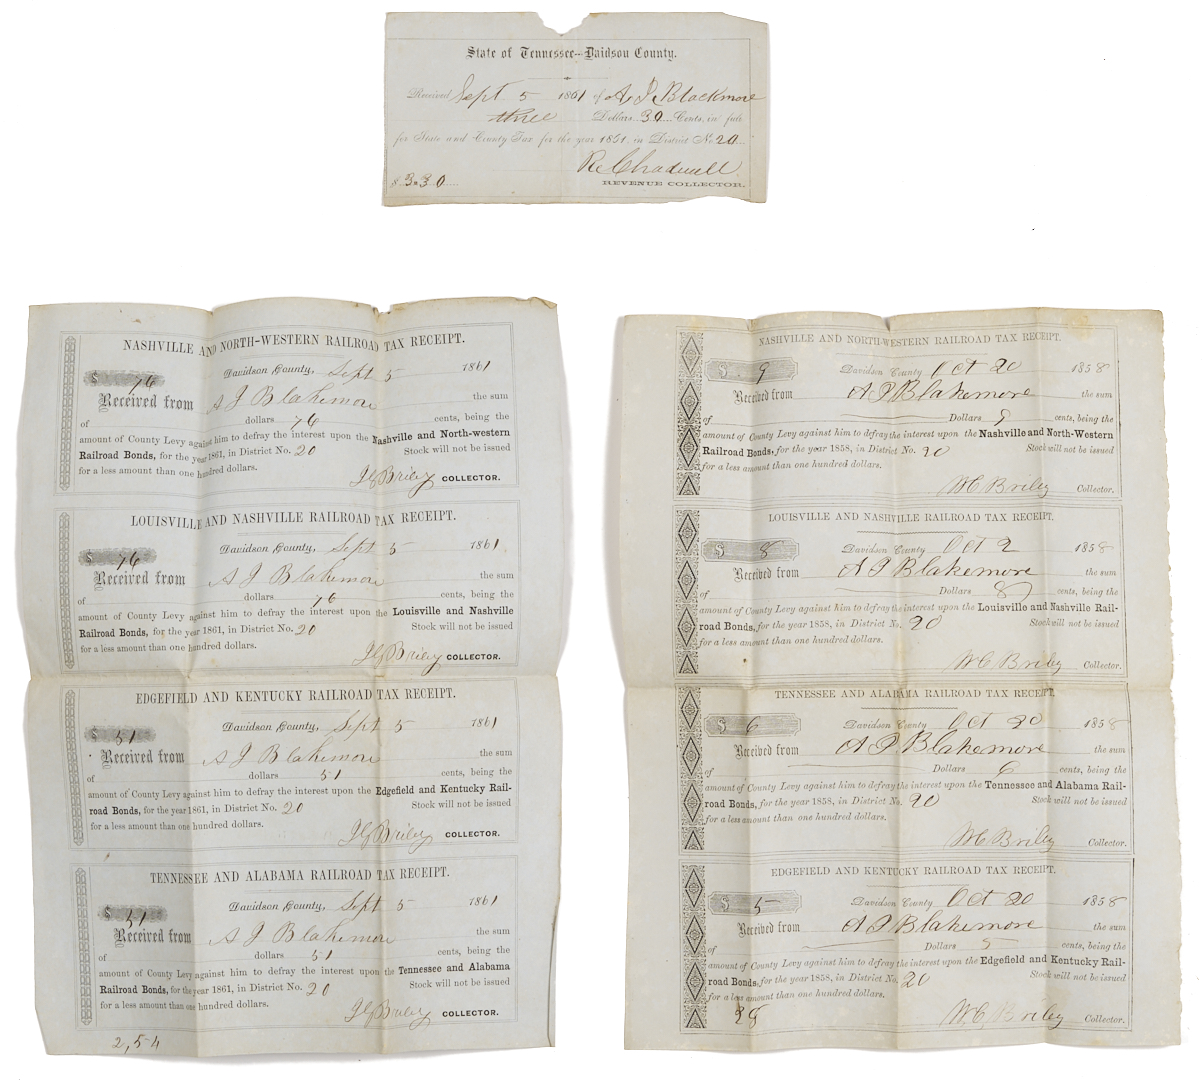 State of Tennessee--Daidson County.
Received Sept 5 1861 of A. J. Blackmore
three Dollars 30 Cents, in full
for State and County Tax for the year 1861, in District No. 20
R. Chadwell
$ 3=30 REVENUE COLLECTOR.
NASHVILLE AND NORTH-WESTERN RAILROAD TAX RECEIPT.
$ 76 Davidson County, Sept 5 1861
Received from A J Blakemore the sum
of dollars 76 cents, being the
amount of County Levy against him to defray the interest upon the Nashville and North-western
Railroad Bonds, for the year 1861, in District No. 20 Stock will not be issued
for a less amount than one hundred dollars.
J G Briley COLLECTOR.
LOUISVILLE AND NASHVILLE RAILROAD TAX RECEIPT.
$ 76 Davidson County, Sept 5 1861
Received from A J Blakemore the sum
of dollars 76 cents, being the
amount of County Levy against him to defray the interest upon the Louisville and Nashville
Railroad Bonds, for the year 1861, in District No. 20 Stock will not be issued
for a less amount than one hundred dollars.
J G Briley COLLECTOR.
EDGEFIELD AND KENTUCKY RAILROAD TAX RECEIPT.
$ 51 Davidson County, Sept 5 1861
Received from A J Blakemore the sum
of dollars 51 cents, being the
amount of County Levy against him to defray the interest upon the Edgefield and Kentucky Rail-
road Bonds, for the year 1861, in District No. 20 Stock will not be issued
for a less amount than one hundred dollars.
J G Briley COLLECTOR.
TENNESSEE AND ALABAMA RAILROAD TAX RECEIPT.
$ 51 Davidson County, Sept 5 1861
Received from A J Blakemore the sum
of dollars 51 cents, being the
amount of County Levy against him to defray the interest upon the Tennessee and Alabama
Railroad Bonds, for the year 1861, in District No. 20 Stock will not be issued
for a less amount than one hundred dollars.
J G Briley COLLECTOR.
2,54
NASHVILLE AND NORTH-WESTERN RAILROAD TAX RECEIPT.
$ 9 Davidson County Oct 20 1858
Received from A J Blakemore the sum
of Dollars 9 cents, being the
amount of County Levy against him to defray the interest upon the Nashville and North-Western
Railroad Bonds, for the year 1858, in District No. 20 Stock will not be issued
for a less amount than one hundred dollars.
W C Briley Collector.
LOUISVILLE AND NASHVILLE RAILROAD TAX RECEIPT.
$ 8 Davidson County Oct 2 1858
Received from A J Blakemore the sum
of Dollars 8 cents, being the
amount of County Levy against him to defray the interest upon the Louisville and Nashville Rail-
road Bonds, for the year 1858, in District No. 20 Stock will not be issued
for a less amount than one hundred dollars.
W C Briley Collector.
TENNESSEE AND ALABAMA RAILROAD TAX RECEIPT.
$ 6 Davidson County Oct 20 1858
Received from A J Blakemore the sum
of Dollars 6 cents, being the
amount of County Levy against him to defray the interest upon the Tennessee and Alabama Rail-
road Bonds, for the year 1858, in District No. 20 Stock will not be issued
for a less amount than one hundred dollars.
W C Briley Collector.
EDGEFIELD AND KENTUCKY RAILROAD TAX RECEIPT.
$ 5 Davidson County Oct 20 1858
Received from A J Blakemore the sum
of Dollars 5 cents, being the
amount of County Levy against him to defray the interest upon the Edgefield and Kentucky Rail-
road Bonds, for the year 1858, in District No. 20 Stock will not be issued
for a less amount than one hundred dollars.
28 W C Briley Collector.